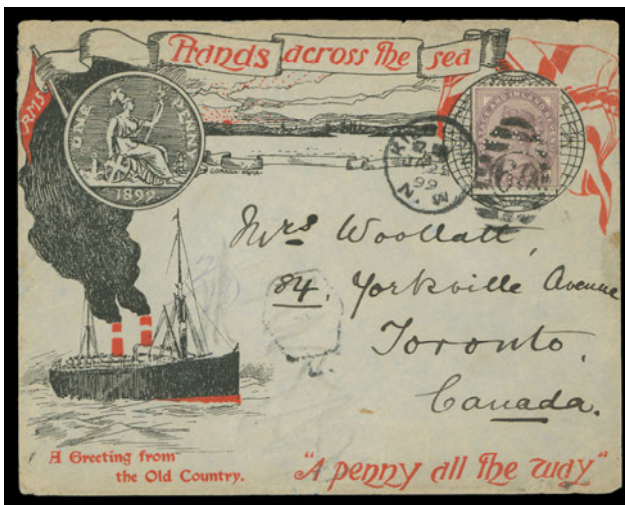 Hands across the sea
RMS
ONE PENNY
1899
Mrs Woollatt,
84. Yorkville Avenue
Toronto,
Canada.
A Greeting from
the Old Country.
"A penny all the way"